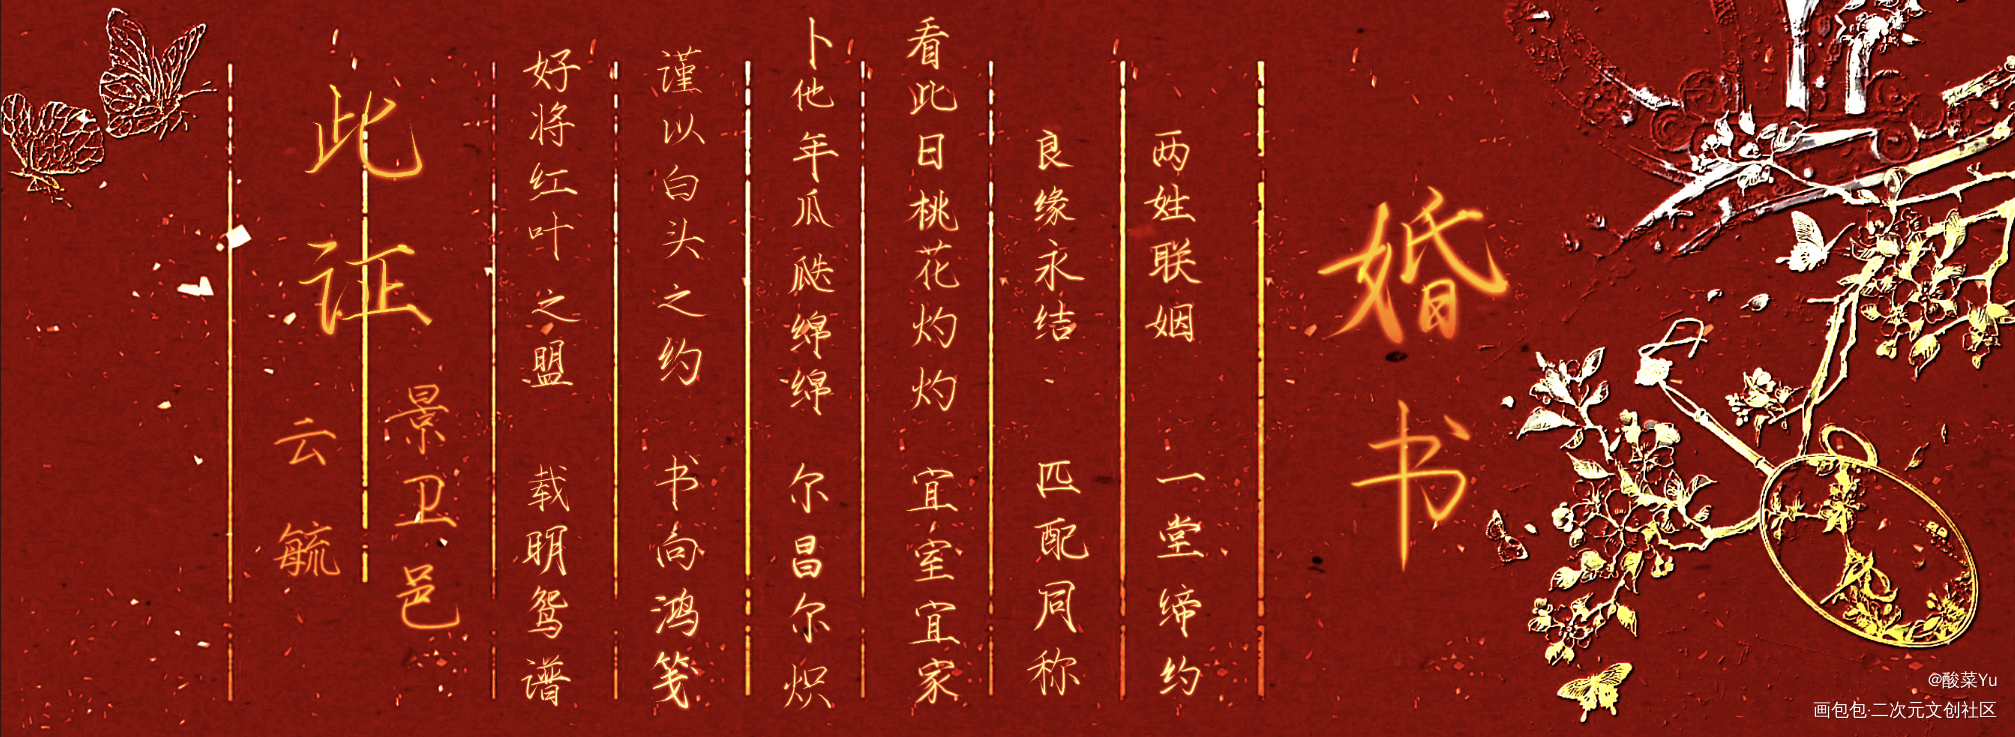 婚书
两姓联姻 一堂缔约
良缘永结 匹配同称
看此日桃花灼灼 宜室宜家
卜他年瓜瓞绵绵 尔昌尔炽
谨以白头之约 书向鸿笺
好将红叶之盟 载明鸳谱
此证
景卫邑
云毓
@酸菜Yu
画包包·二次元文创社区